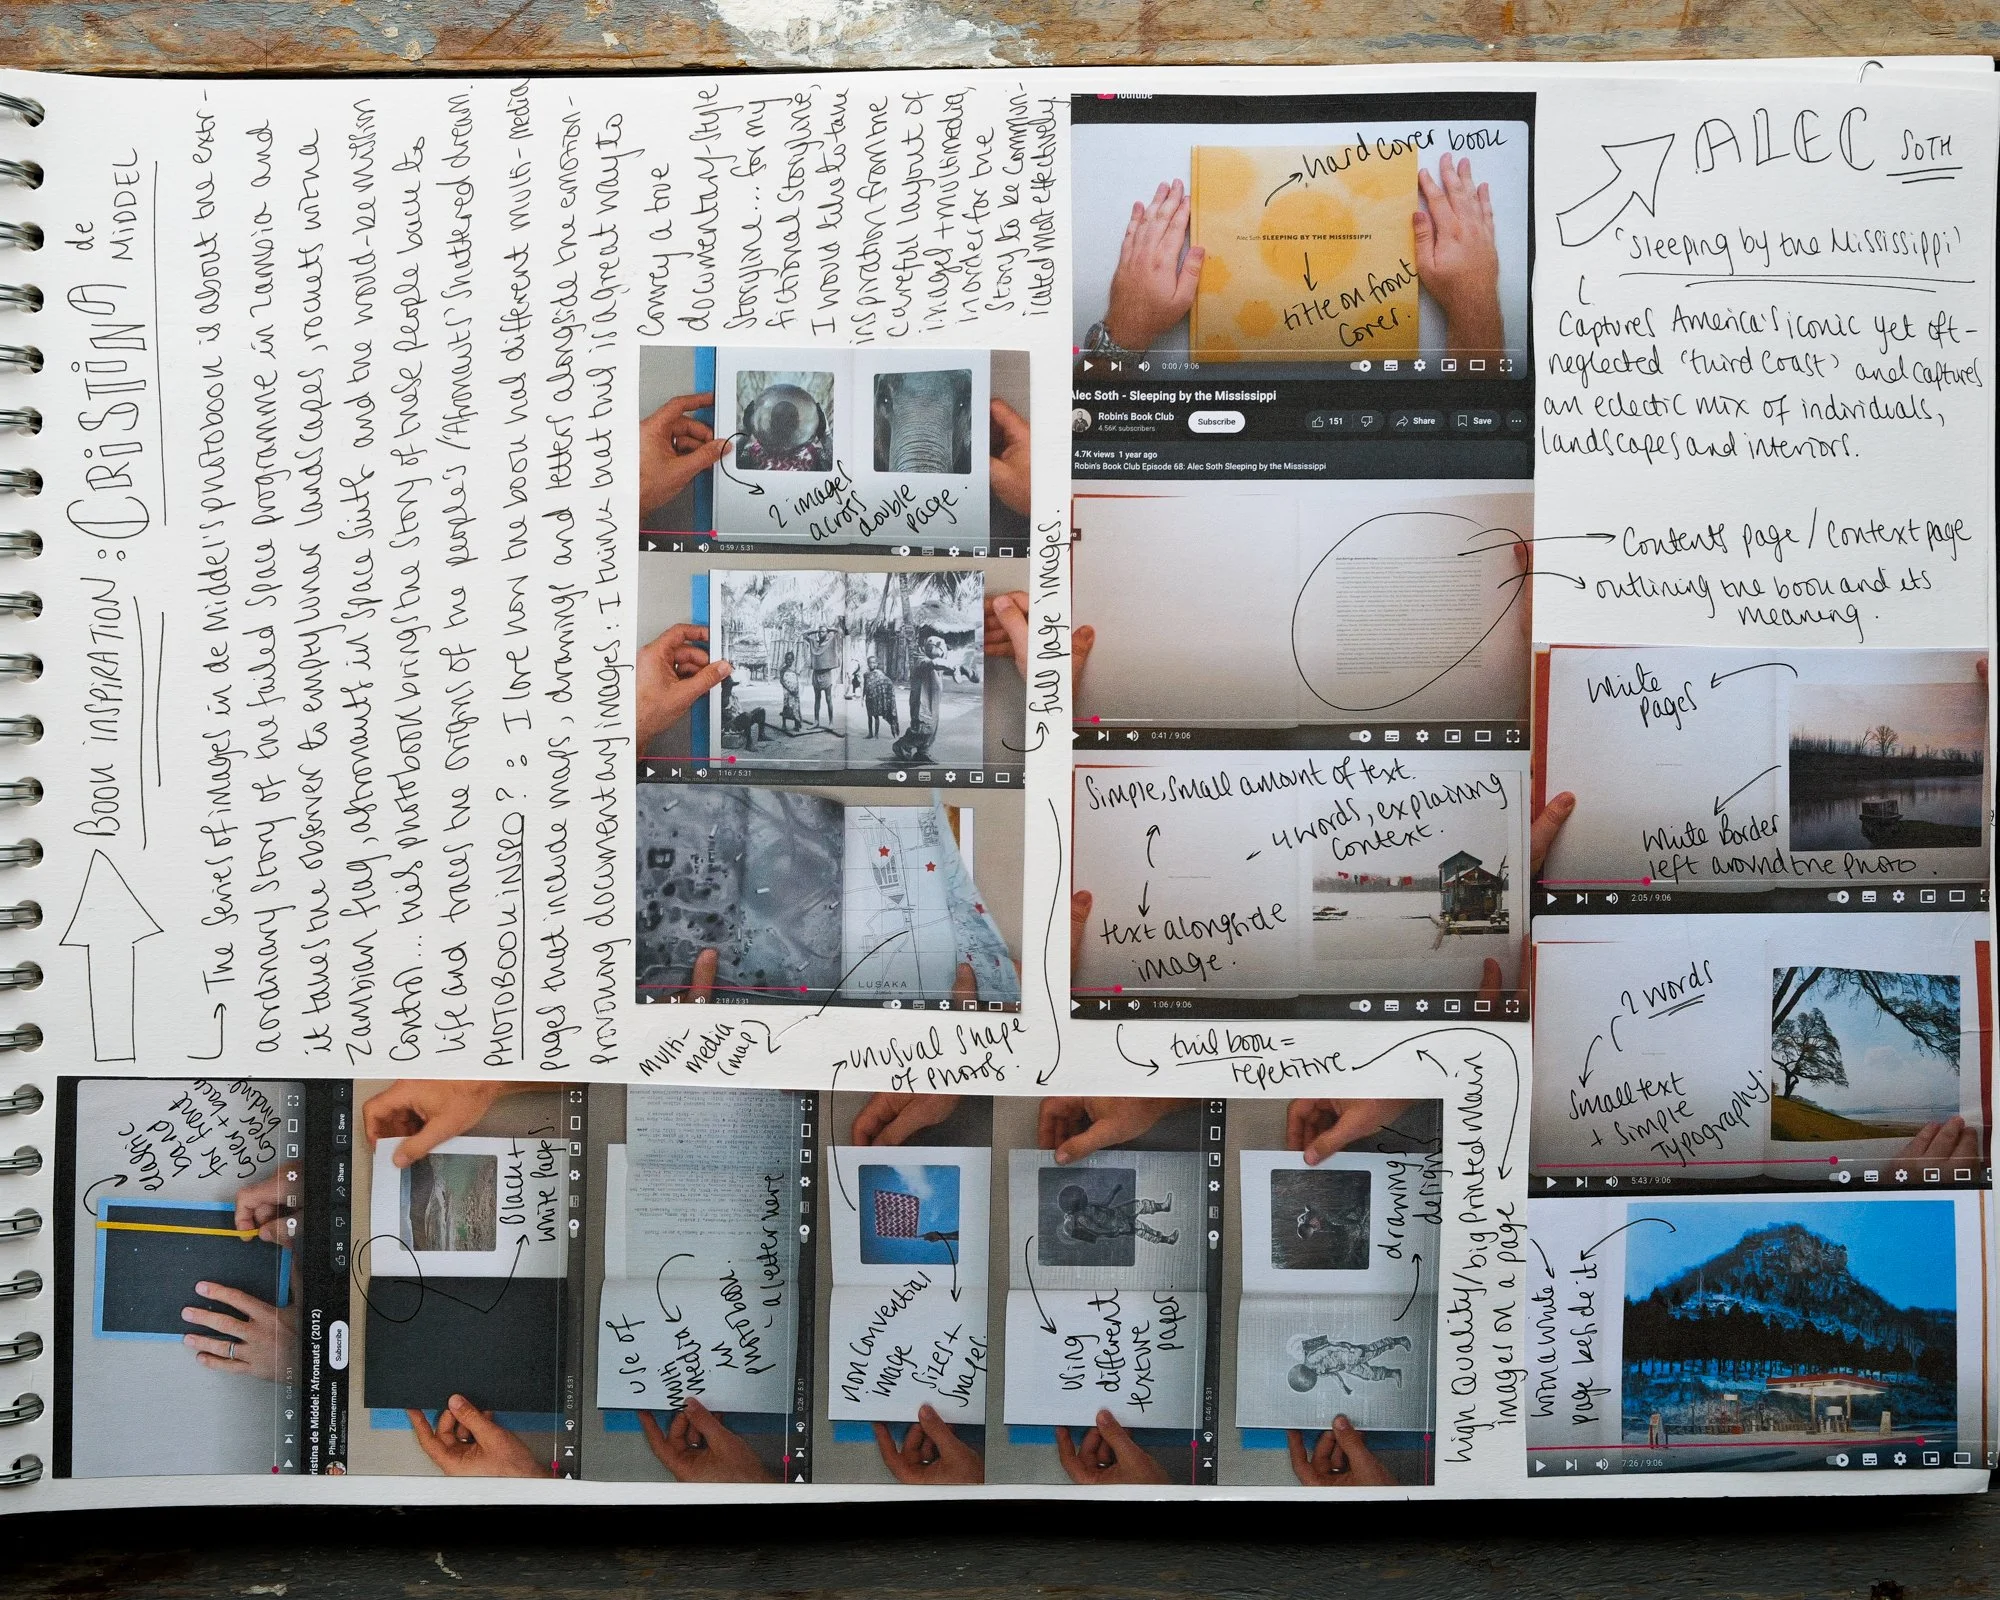 BOOK INSPIRATION : CRISTINA de MIDDEL
The series of images in de Middel's photobook is about the extr-
aordinary story of the failed space programme in Zambia and
it takes the observer to empty lunar landscapes, rockets with a
Zambian flag, afronauts in space suits and the would-be mission
control... this photobook brings the story of these people back to
life and traces the origins of the people's/'Afronauts' shattered dream.
PHOTOBOOK INSPO? : I love how the book has different multi-media
pages that include maps, drawings and letters alongside the emotion-
provoking documentary images : I think that this is a great way to
convey a true
documentary-style
storyline... for my
fictional storyline,
I would like to take
inspiration from the
careful layout of
images + multimedia,
in order for the
story to be commun-
icated most effectively.
2 images
across
double
page.
0:59 / 5:31
full page images.
1:16 / 5:31
LUSAKA
2:18 / 5:31
multi-
media
(map)
unusual shape
of photos.
elastic
band
for front
cover + back
cover
binding
0:04 / 5:31
ristina de Middel: 'Afronauts' (2012)
Philip Zimmermann
Subscribe
35
Share
Save
Black +
white pages.
0:19 / 5:31
use of
multi
media
in
photobook.
- a letter here.
0:26 / 5:31
non conventional
image
sizes +
shapes.
using
different
texture
paper.
0:46 / 5:31
drawings/
designs
YouTube
hard cover book
Alec Soth SLEEPING BY THE MISSISSIPPI
title on front
cover.
0:00 / 9:06
Alec Soth - Sleeping by the Mississippi
Robin's Book Club
4.56K subscribers
Subscribe
151
Share
Save
4.7K views 1 year ago
Robin's Book Club Episode 68: Alec Soth Sleeping by the Mississippi
0:41 / 9:06
Simple, small amount of text.
- 4 words, explaining
context.
text alongside
image.
1:06 / 9:06
this book =
repetitive
High Quality/big printed main
images on a page
ALEC SOTH
'Sleeping by the Mississippi'
Captures America's iconic yet oft-
neglected 'third coast' and captures
an eclectic mix of individuals,
landscapes and interiors.
Contents page / Context page
outlining the book and its
meaning.
White
pages
White Border
left around the photo.
2:05 / 9:06
2 words
Small text
+ simple
typography.
5:43 / 9:06
with a white
page beside it
7:26 / 9:06